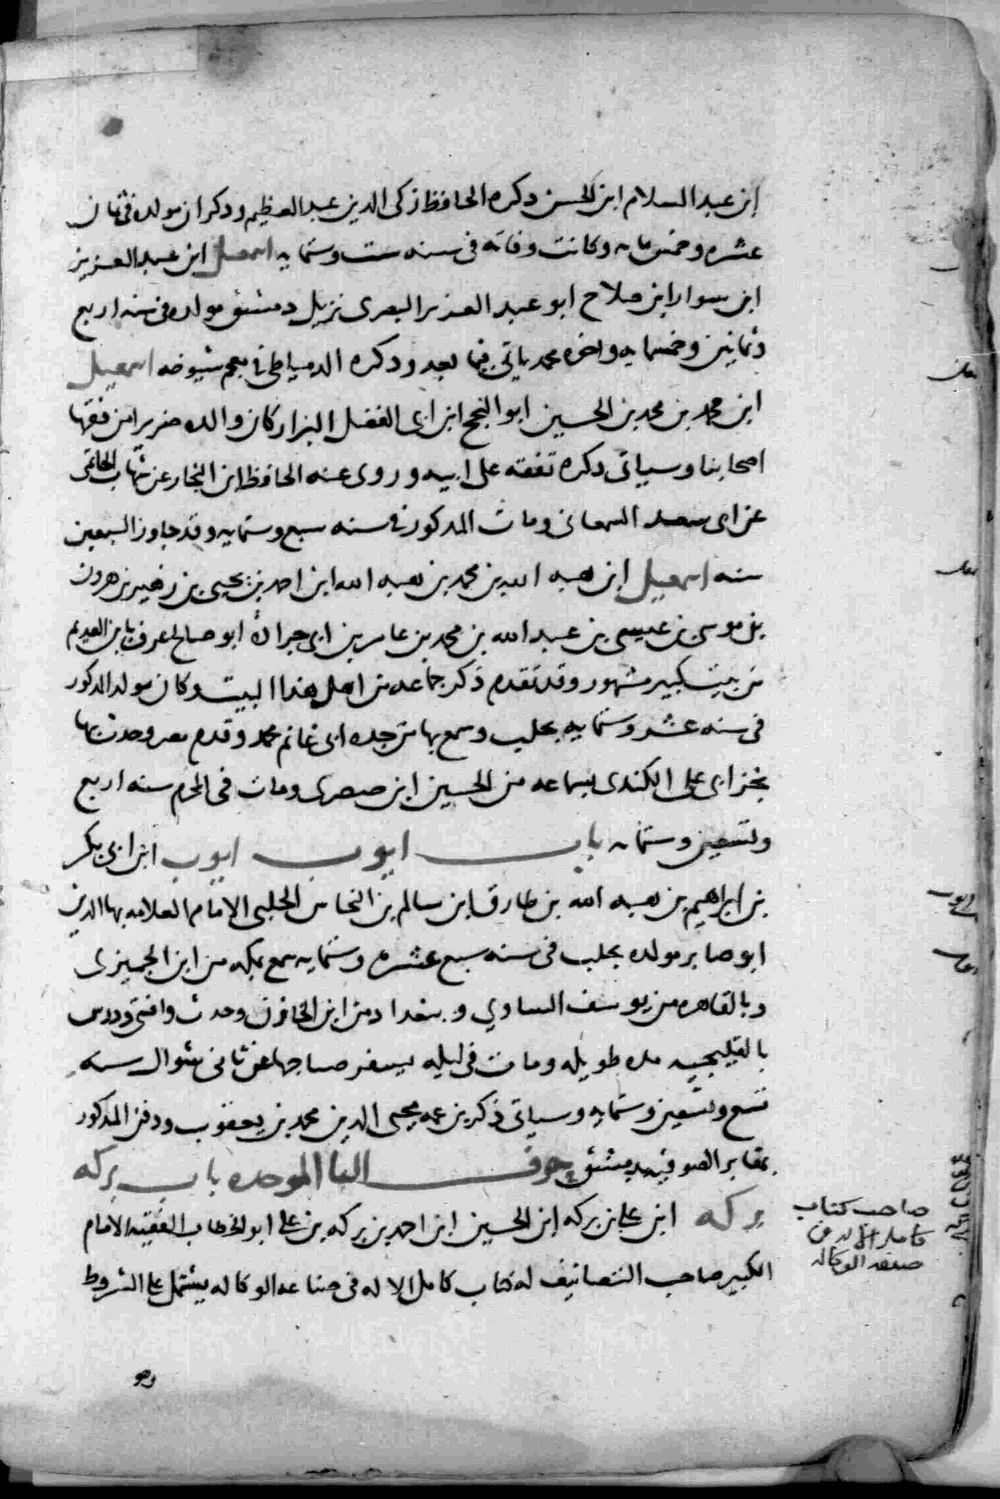 ابن عبد السلام ابن الحسن دكره الحافظ زكى الدين عبد العظيم ودكر ان مولده فى ثمان
عشره وخمس مايه وكانت وفاته فى سنه ست وستمايه اسمعيل ابن عبد العزيز
ابن سوار ابن صلاح ابو عبد العزيز البصرى نزيل دمشق مولده فى سنه اربع
وثمانين وخمسمايه واخوه محمد ياتى فيما بعد ودكره الدمياطى فى معجم شيوخه اسمعيل
ابن محمد بن محمد بن الحسين ابو النجح ابن ابى الفضل البزار كان والده ضرير امن فقها
اصحابنا وسياتى دكره تفقه على ابيه وروى عنه الحافظ ابن النجار عن شهاب الحاتمى
عن ابى سعد السمعانى ومات المدكور فى سنه سبع وستمايه وقد جاوز السبعين
سنه اسمعيل ابن هبه الله بن محمد بن هبه الله ابن احمد بن يحيى بن زهير بن هرون
بن موسى بن عيسى بن عبد الله بن محمد بن عامر بن ابى جراده ابو صالح عرف بابن العديم
من بيت كبير مشهور وقد تقدم ذكر جماعه من اهل هذا البيت وكان مولد المدكور
فى سنه عشر وستمايه بحلب وسمع بها من جده ابى غانم محمد وقدم مصر وحدث بها
بخبر ابى على الكندى بسماعه من الحسين ابن صصرى ومات فى المحرم سنه اربع
وتسعين وستمايه باب ايوب ايوب ابن ابى بكر
بن ابراهيم بن هبه الله بن طارق ابن سالم بن النحاس الحلبى الامام العلامه بها الدين
ابو صابر مولده بحلب فى سنه سبع عشره وستمايه سمع بمكه من ابن الجميزى
وبالقاهره من يوسف الساوى وببغداد من ابن الخازن وحدث وافتى ودرس
بالقليجيه مده طويله ومات فى ليله يسفر صباحها عن ثانى شوال سنه
تسع وتسعين وستمايه وسياتى ذكر بن عمه محيى الدين محمد بن يعقوب ودفن المدكور
بمقابر الصوفيه بدمشق حرف البا الموحده باب بركه
بركه ابن على بن بركه ابن الحسين ابن احمد بن بركه بن على ابو الخطاب الفقيه الامام
الكبير صاحب التصانيف له كتاب كامل الاله فى صناعه الوكاله يشتمل على الشروط
صاحب كتاب
كامل الاله فى
صنعه الوكاله